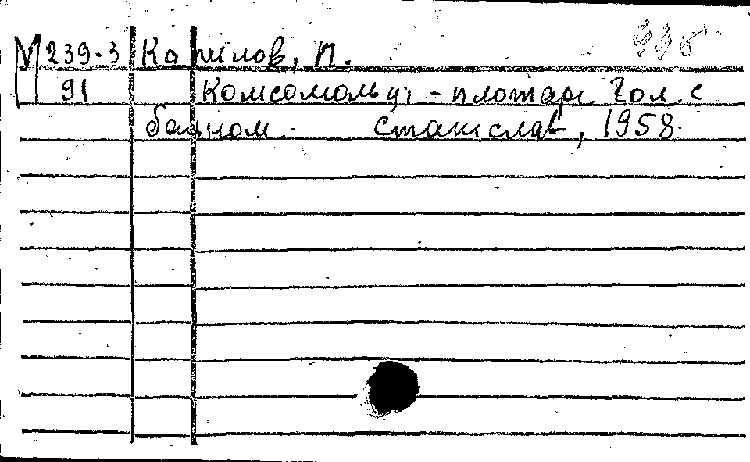 М 239-3 Карпілов, П.
91 Комсомольці - плотарі Гол. с
баяном. Станіслав, 1958.